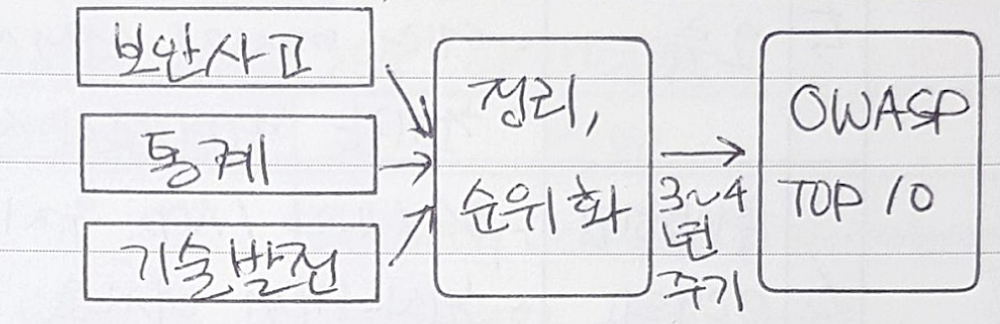 보안사고
통계
기술발전
정리,
순위화
3~4
년
주기
OWASP
TOP 10